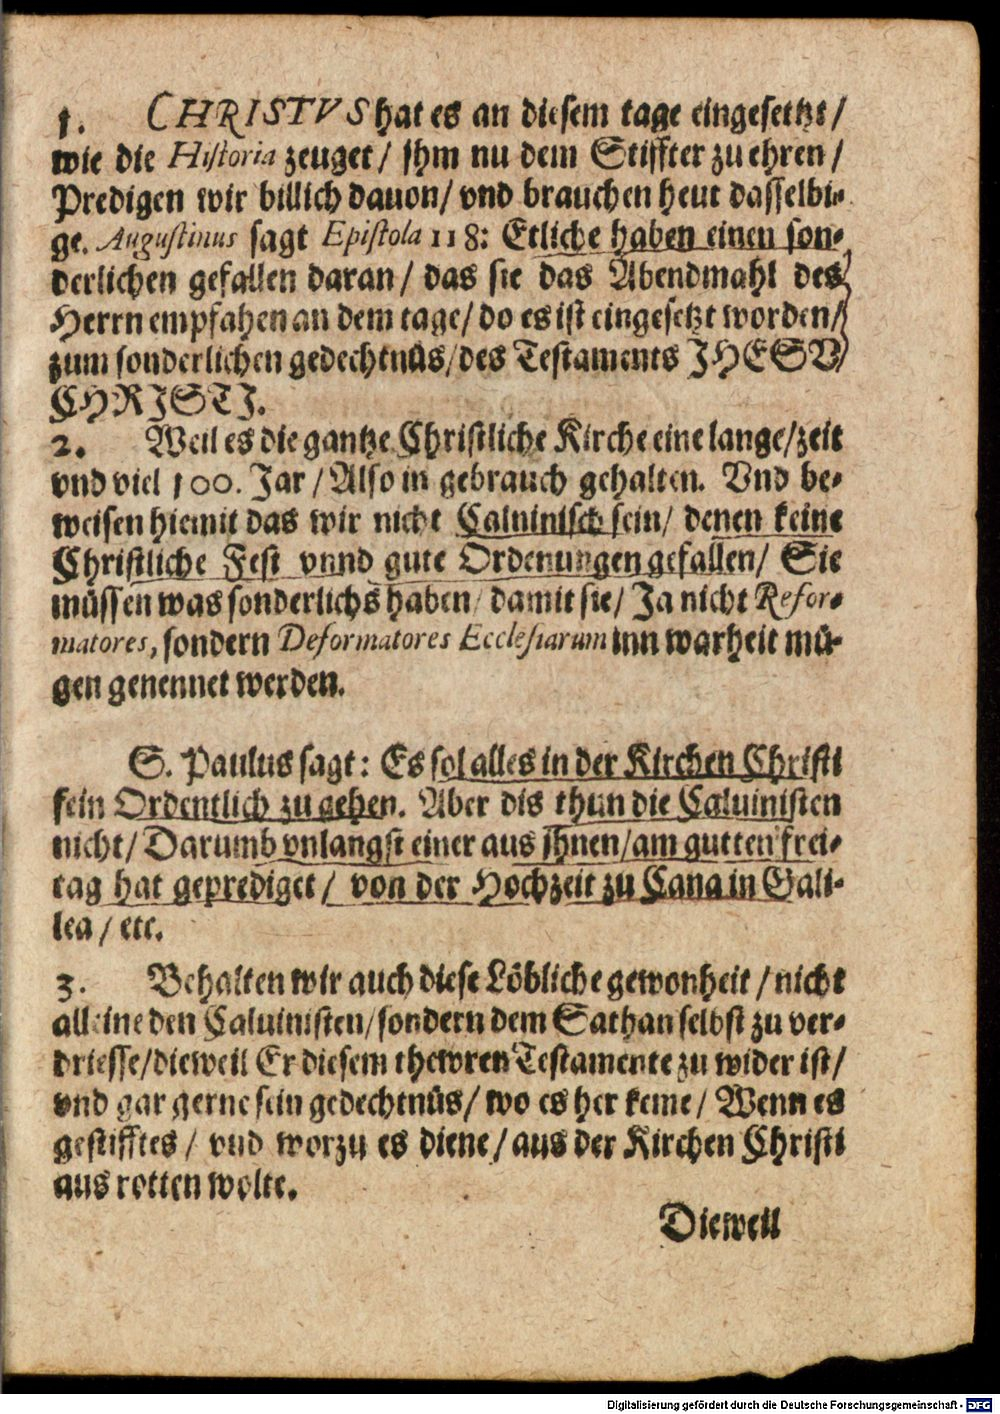 1. CHRISTVS hat es an diesem tage eingesetzt/
wie die Historia zeuget/ jhm nu dem Stiffter zu ehren/
Predigen wir billich dauon/ vnd brauchen heut dasselbi-
ge. Augustinus sagt Epistola 118: Etliche haben einen son-
derlichen gefallen daran/ das sie das Abendmahl des
Herrn empfahen an dem tage/ do es ist eingesetzt worden/
zum sonderlichen gedechtnüs/ des Testaments JHESV
CHRISTI.
2. Weil es die gantze Christliche Kirche eine lange/ zeit
vnd viel 100. Jar/ Also in gebrauch gehalten. Vnd be-
weisen hiemit das wir nicht Caluinisch sein/ denen keine
Christliche Fest vnnd gute Ordenungen gefallen/ Sie
müssen was sonderlichs haben/ damit sie/ Ja nicht Refor-
matores, sondern Deformatores Ecclesiarum inn warheit mü-
gen genennet werden.
S. Paulus sagt: Es sol alles in der Kirchen Christi
fein Ordentlich zu gehen. Aber dis thun die Caluinisten
nicht/ Darumb vnlangst einer aus jhnen/ am gutten frei-
tag hat geprediget/ von der Hochzeit zu Cana in Gali-
lea/ etc.
3. Behalten wir auch diese Löbliche gewonheit/ nicht
alleine den Caluinisten/ sondern dem Sathan selbst zu ver-
driesse/ dieweil Er diesem thewren Testamente zu wider ist/
vnd gar gerne sein gedechtnüs/ wo es her keme/ Wenn es
gestifftes/ vnd worzu es diene/ aus der Kirchen Christi
aus rotten wolte.
Dieweil
Digitalisierung gefördert durch die Deutsche Forschungsgemeinschaft - DFG